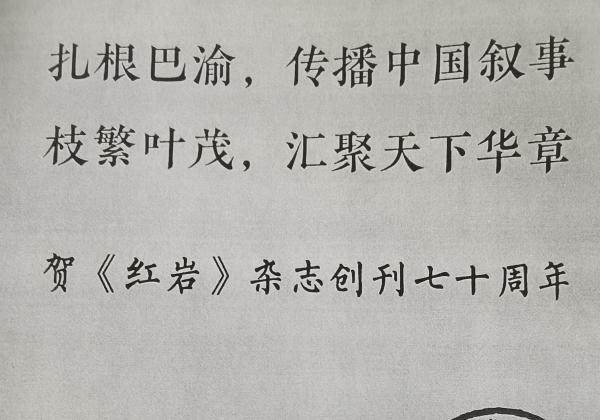 扎根巴渝，传播中国叙事
枝繁叶茂，汇聚天下华章
贺《红岩》杂志创刊七十周年